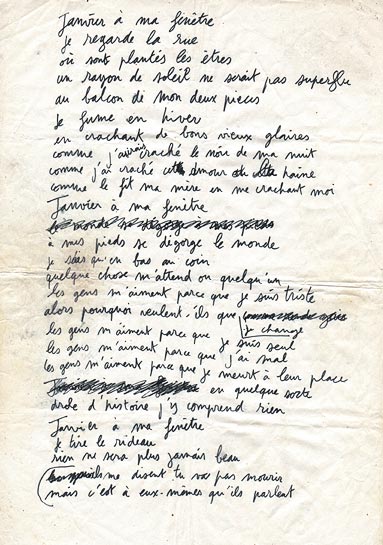 Janvier à ma fenêtre
je regarde la rue
où sont plantés les êtres
un rayon de soleil ne serait pas superflu
au balcon de mon deux pièces
Je fume en hiver
en crachant de bons vieux glaires
comme j'aurais craché le noir de ma nuit
comme j'ai craché amour et haine
comme le fit ma mère en me crachant moi
Janvier à ma fenêtre
à mes pieds se dégorge le monde
je sais qu'en bas au coin
quelque chose m'attend ou quelqu'un
les gens m'aiment parce que je suis triste
alors pourquoi veulent-ils que
je change
les gens m'aiment parce que je suis seul
les gens m'aiment parce que j'ai mal
les gens m'aiment parce que je meurt à leur place
en quelque sorte
drole d'histoire j'y comprend rien
Janvier a ma fenêtre
je tire le rideau
rien ne sera plus jamais beau
ils me disent tu vas pas mourir
mais c'est à eux-mêmes qu'ils parlent